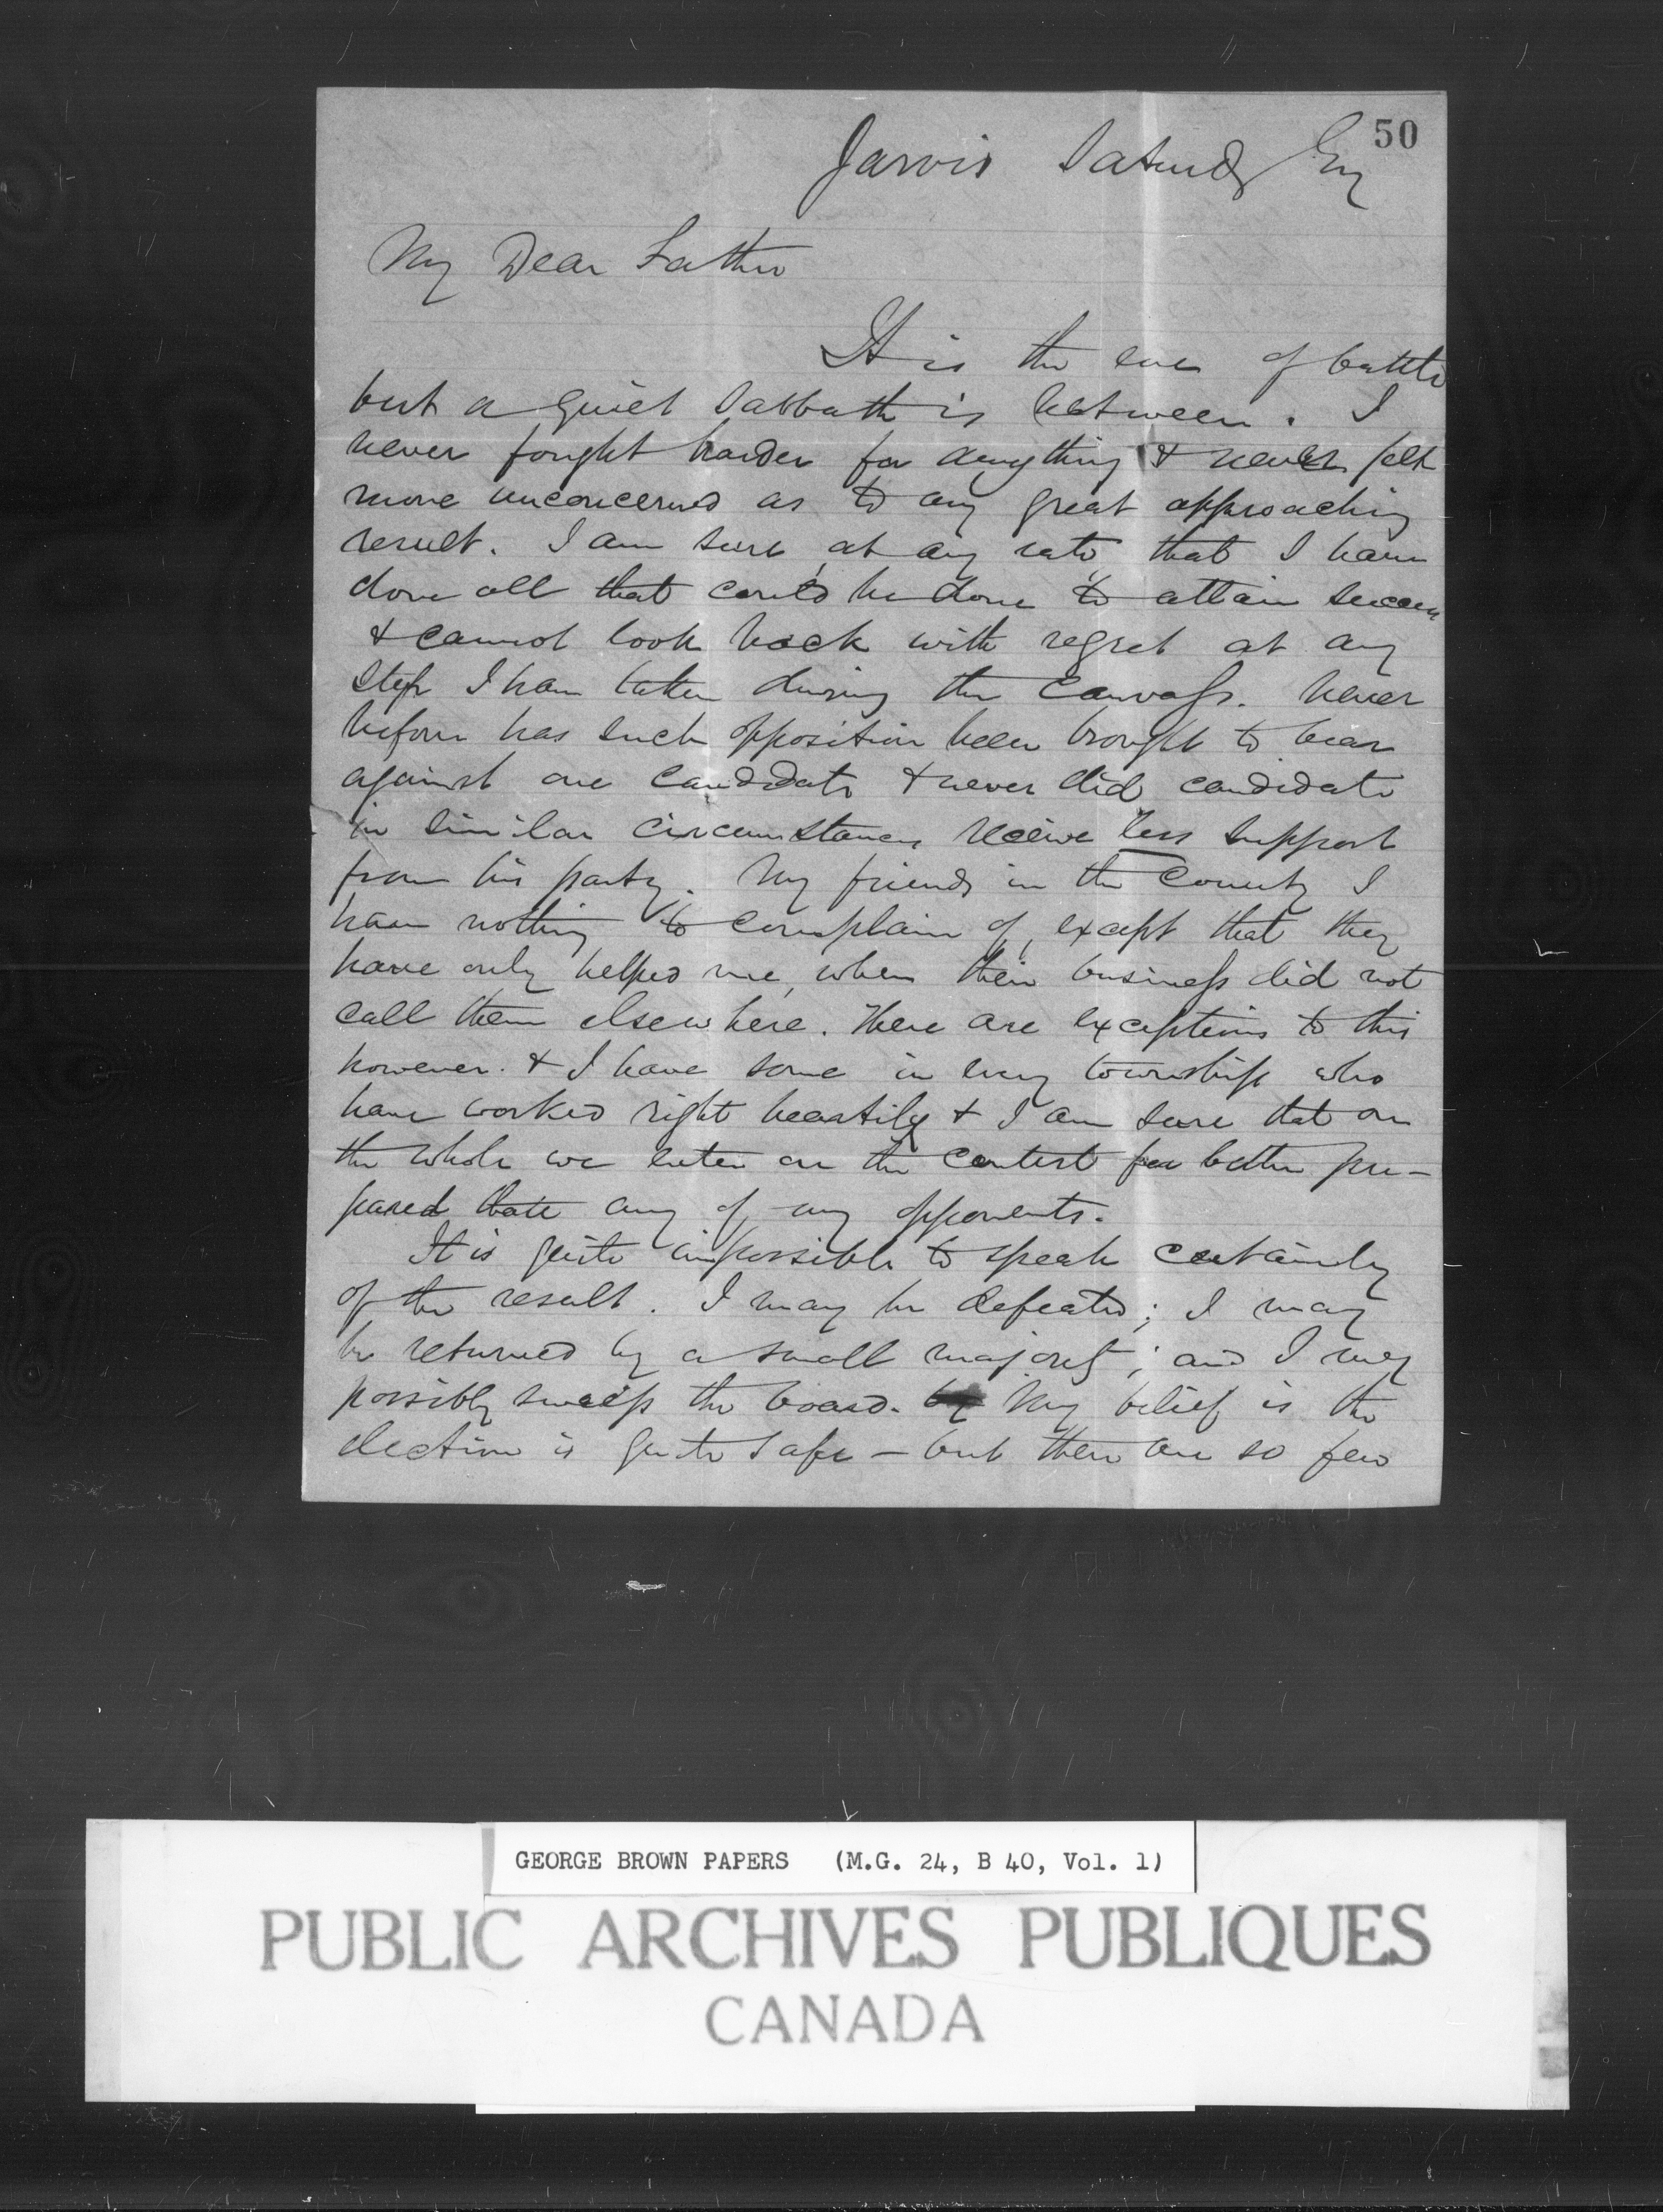 50
Jarvis Saturdy Evg
My Dear Father
It is the eve of battle
but a quiet Sabbath is between. I
never fought harder for anything & never felt
more unconcerned as to any great approaching
result. I am sure, at any rate, that I have
done all that could be done to attain success
& cannot look back with regret at any
step I have taken during the canvass. Never
before has such opposition been brought to bear
against one candidate & never did candidate
in similar circumstances receive less support
from his party. My friends in the County I
have nothing to complain of, except that they
have only helped me, when their business did not
call them elsewhere. There are exceptions to this
however. & I have some in every township who
have worked right heartily & I am sure that on
the whole we enter on the contest far better pre-
pared than any of my opponents.
It is quite impossible to speak certainly
of the result. I may be defeated; I may
be returned by a small majority; and I may
possibly sweep the board. My belief is the
election is quite safe – but there are so few
GEORGE BROWN PAPERS (M.G. 24, B 40, Vol. 1)
PUBLIC ARCHIVES PUBLIQUES
CANADA